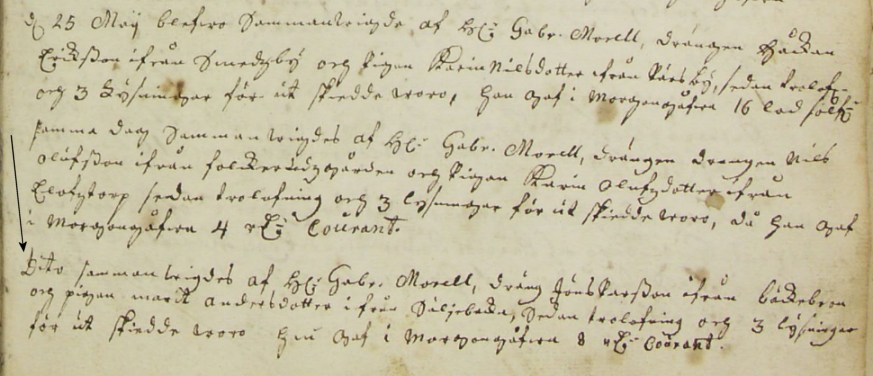 d 25 Maij blefwo Sammanwigde af H: Gabr. Morell, drängen Håckan
Erikßon ifrån Smedzby och pigan Karin Nilsdotter ifrån Pårsby, sedan trolof-
och 3 Lysningar för üt skiedde woro, han gaf i Morgongåfwa 16 lod sölf
samma dag Sammanwigdes af H: Gabr. Morell, drängen drängen Nils
Olufßon ifrån och Pigan Karin Olufzdotter ifrån
Elofztorp sedan trolofning och 3 lysningar för üt skiedde woro, då han gaf
i Morgongåfwa 4 rd: Courant.
Dito sammanwigdes af H: Gabr. Morell, dräng Jöns Larßon ifrån bäckebron
och pigan marit andersdotter ifrån Säljebacka, Sedan trolofning och 3 lysningar
för üt skiedde woro han gaf i Morgongåfwa 8 rd: Courant.